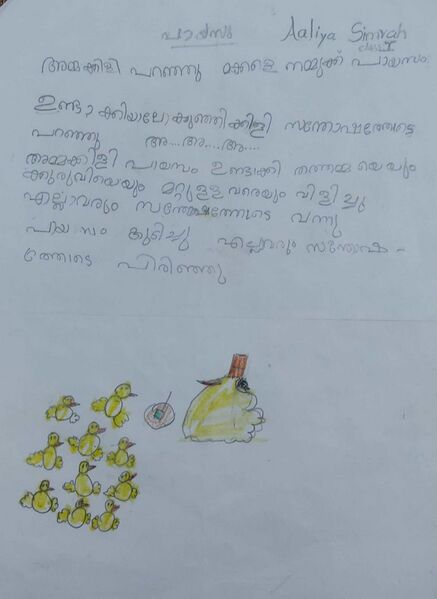 പായസം Aaliya Simrah
class I
അമ്മക്കിളി പറഞ്ഞു മക്കളെ നമ്മുക്ക് പായസം
ഉണ്ടാക്കിയാലോ കുഞ്ഞിക്കിളി സന്തോഷത്തോട്ടെ
പറഞ്ഞു അ....അ....അ....
അമ്മക്കിളി പായസം ഉണ്ടാക്കി തത്തമ്മ യെയും
കുരുവിയെയും മറ്റുള്ള വരെയും വിളിച്ചു
എല്ലാവരും സന്തോഷത്തോടെ വന്നു
പായസം കുടിച്ചു എല്ലവരും സന്തോഷ -
ത്തോടെ പിരിഞ്ഞു